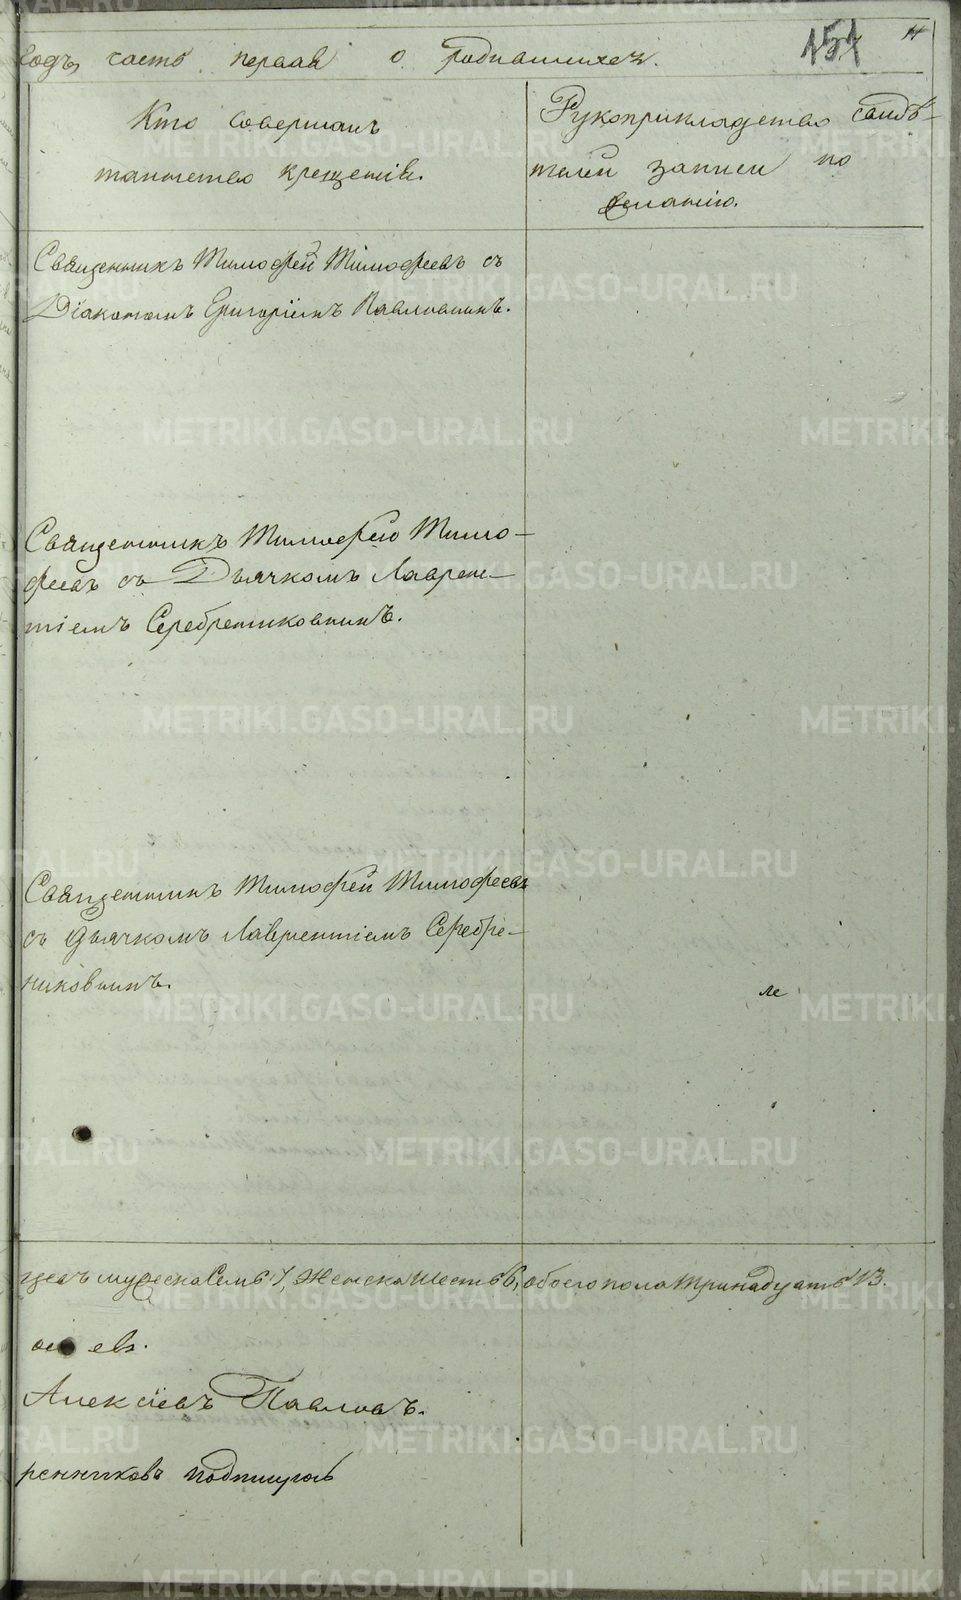 годъ, часть первая о родившихся.
151
Кто совершалъ
таинство крещенія.
Рукоприкладство свидѣ-
телей записи по
желанію.
Священникъ Тимофей Тимофеевъ съ
Діакономъ Григоріемъ Павловымъ.
Священникъ Тимофей Тимо-
феевъ съ Дьячкомъ Лаврен-
тіемъ Серебрениковымъ.
Священникъ Тимофей Тимофеевъ
съ Дьячкомъ Лаврентіемъ Серебре-
никовымъ.
мужеска Семь 7, Женска Шесть 6, обоего пола Тринадцать 13.
евъ.
Алексіевъ Павловъ.
ренниковъ подпишуюсь
METRIKI.GASO-URAL.RU